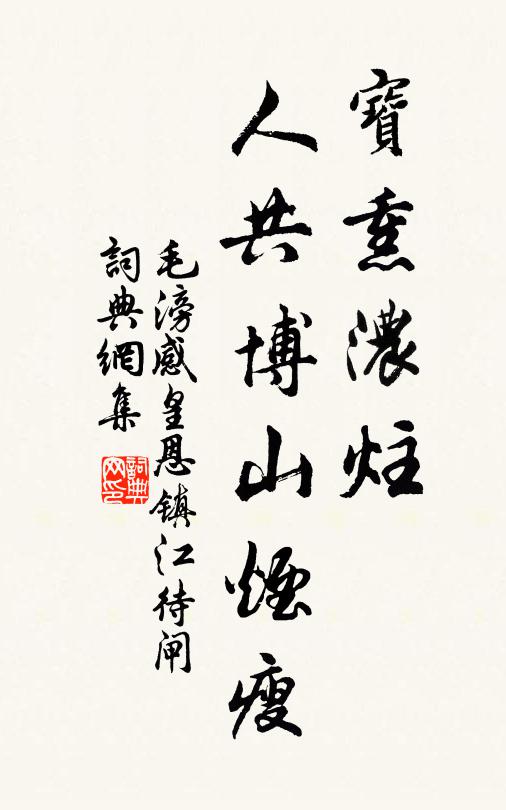 寶熏濃炷
人共博山煙瘦
毛滂感皇恩鎮江待閘
詞典網集
詞典网印